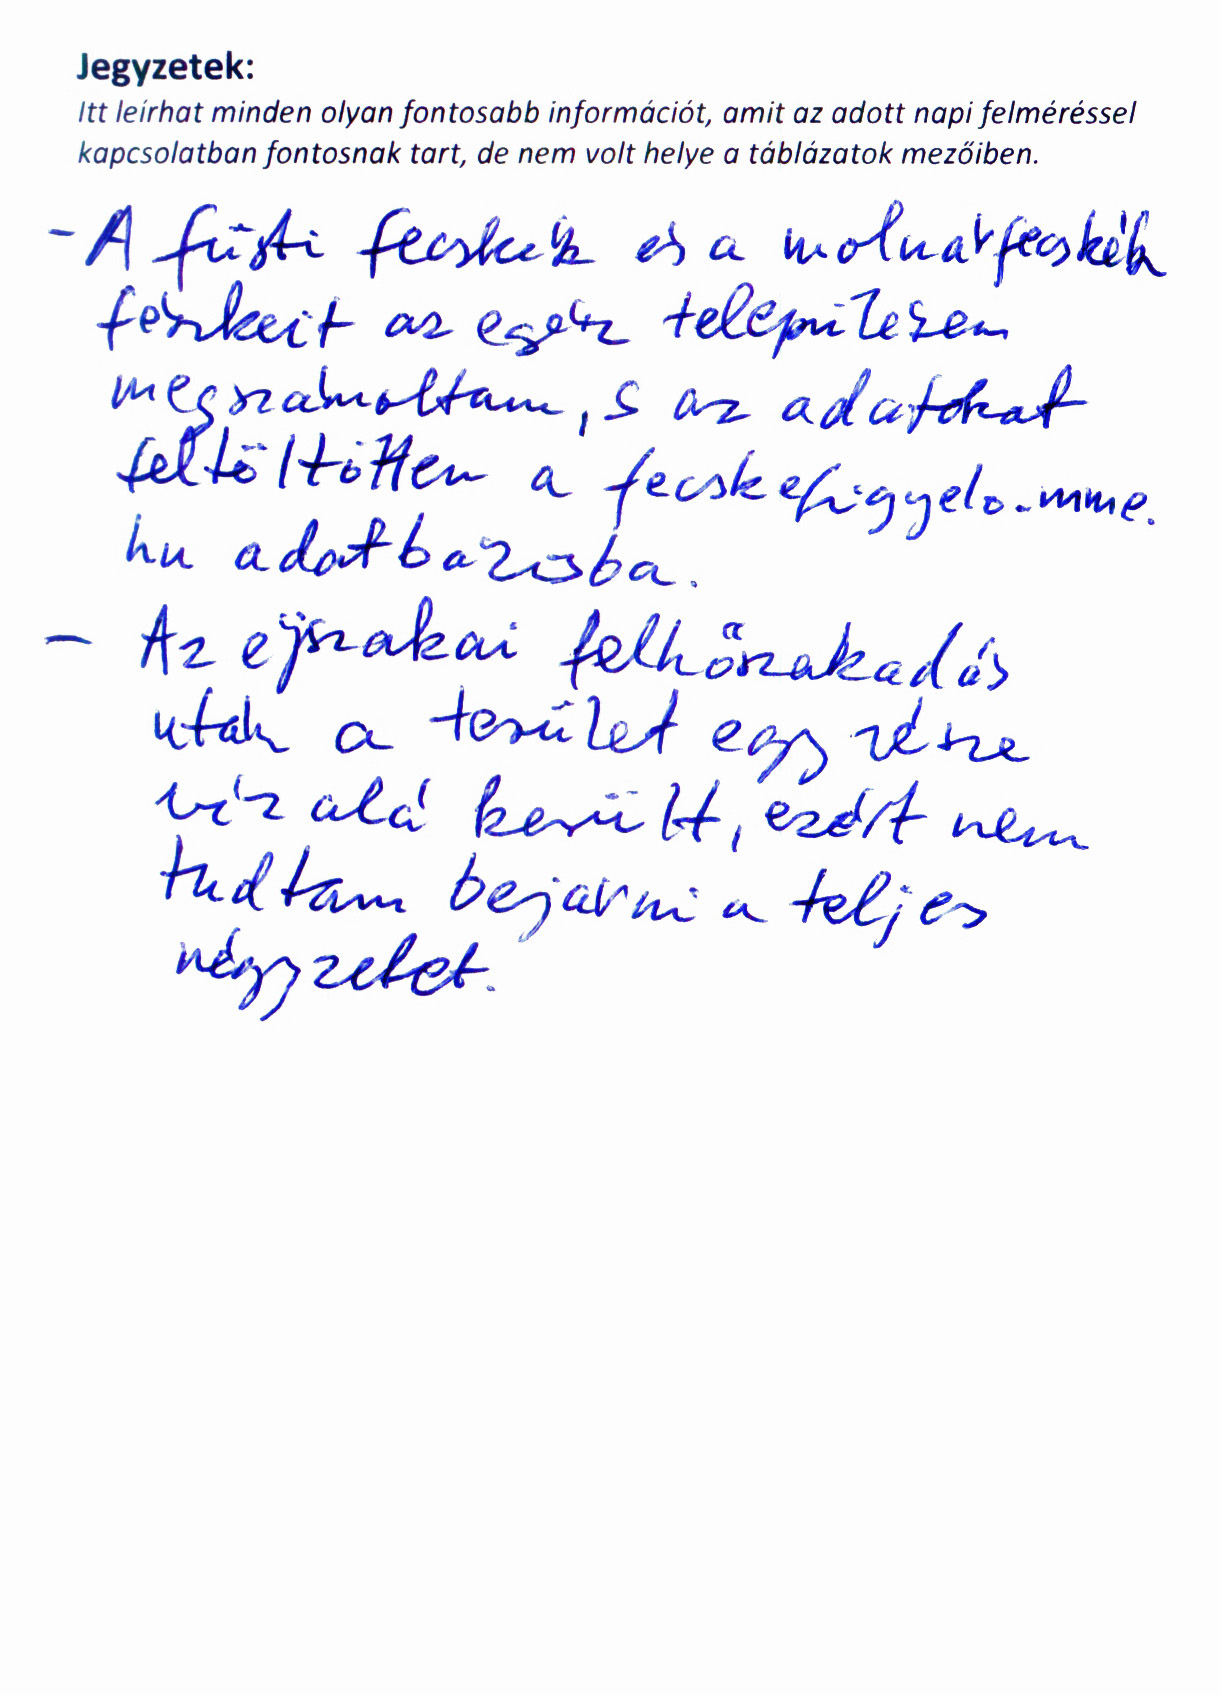 Jegyzetek:
Itt leírhat minden olyan fontosabb információt, amit az adott napi felméréssel
kapcsolatban fontosnak tart, de nem volt helye a táblázatok mezőiben.
- A füsti fecskék és a molnárfecskék
fészkeit az egész településen
megszámoltam, s az adatokat
feltöltöttem a fecskefigyelo.mme.
hu adatbázisba.
- Az éjszakai felhőszakadás
után a terület egy része
víz alá került, ezért nem
tudtam bejárni a teljes
négyzetet.